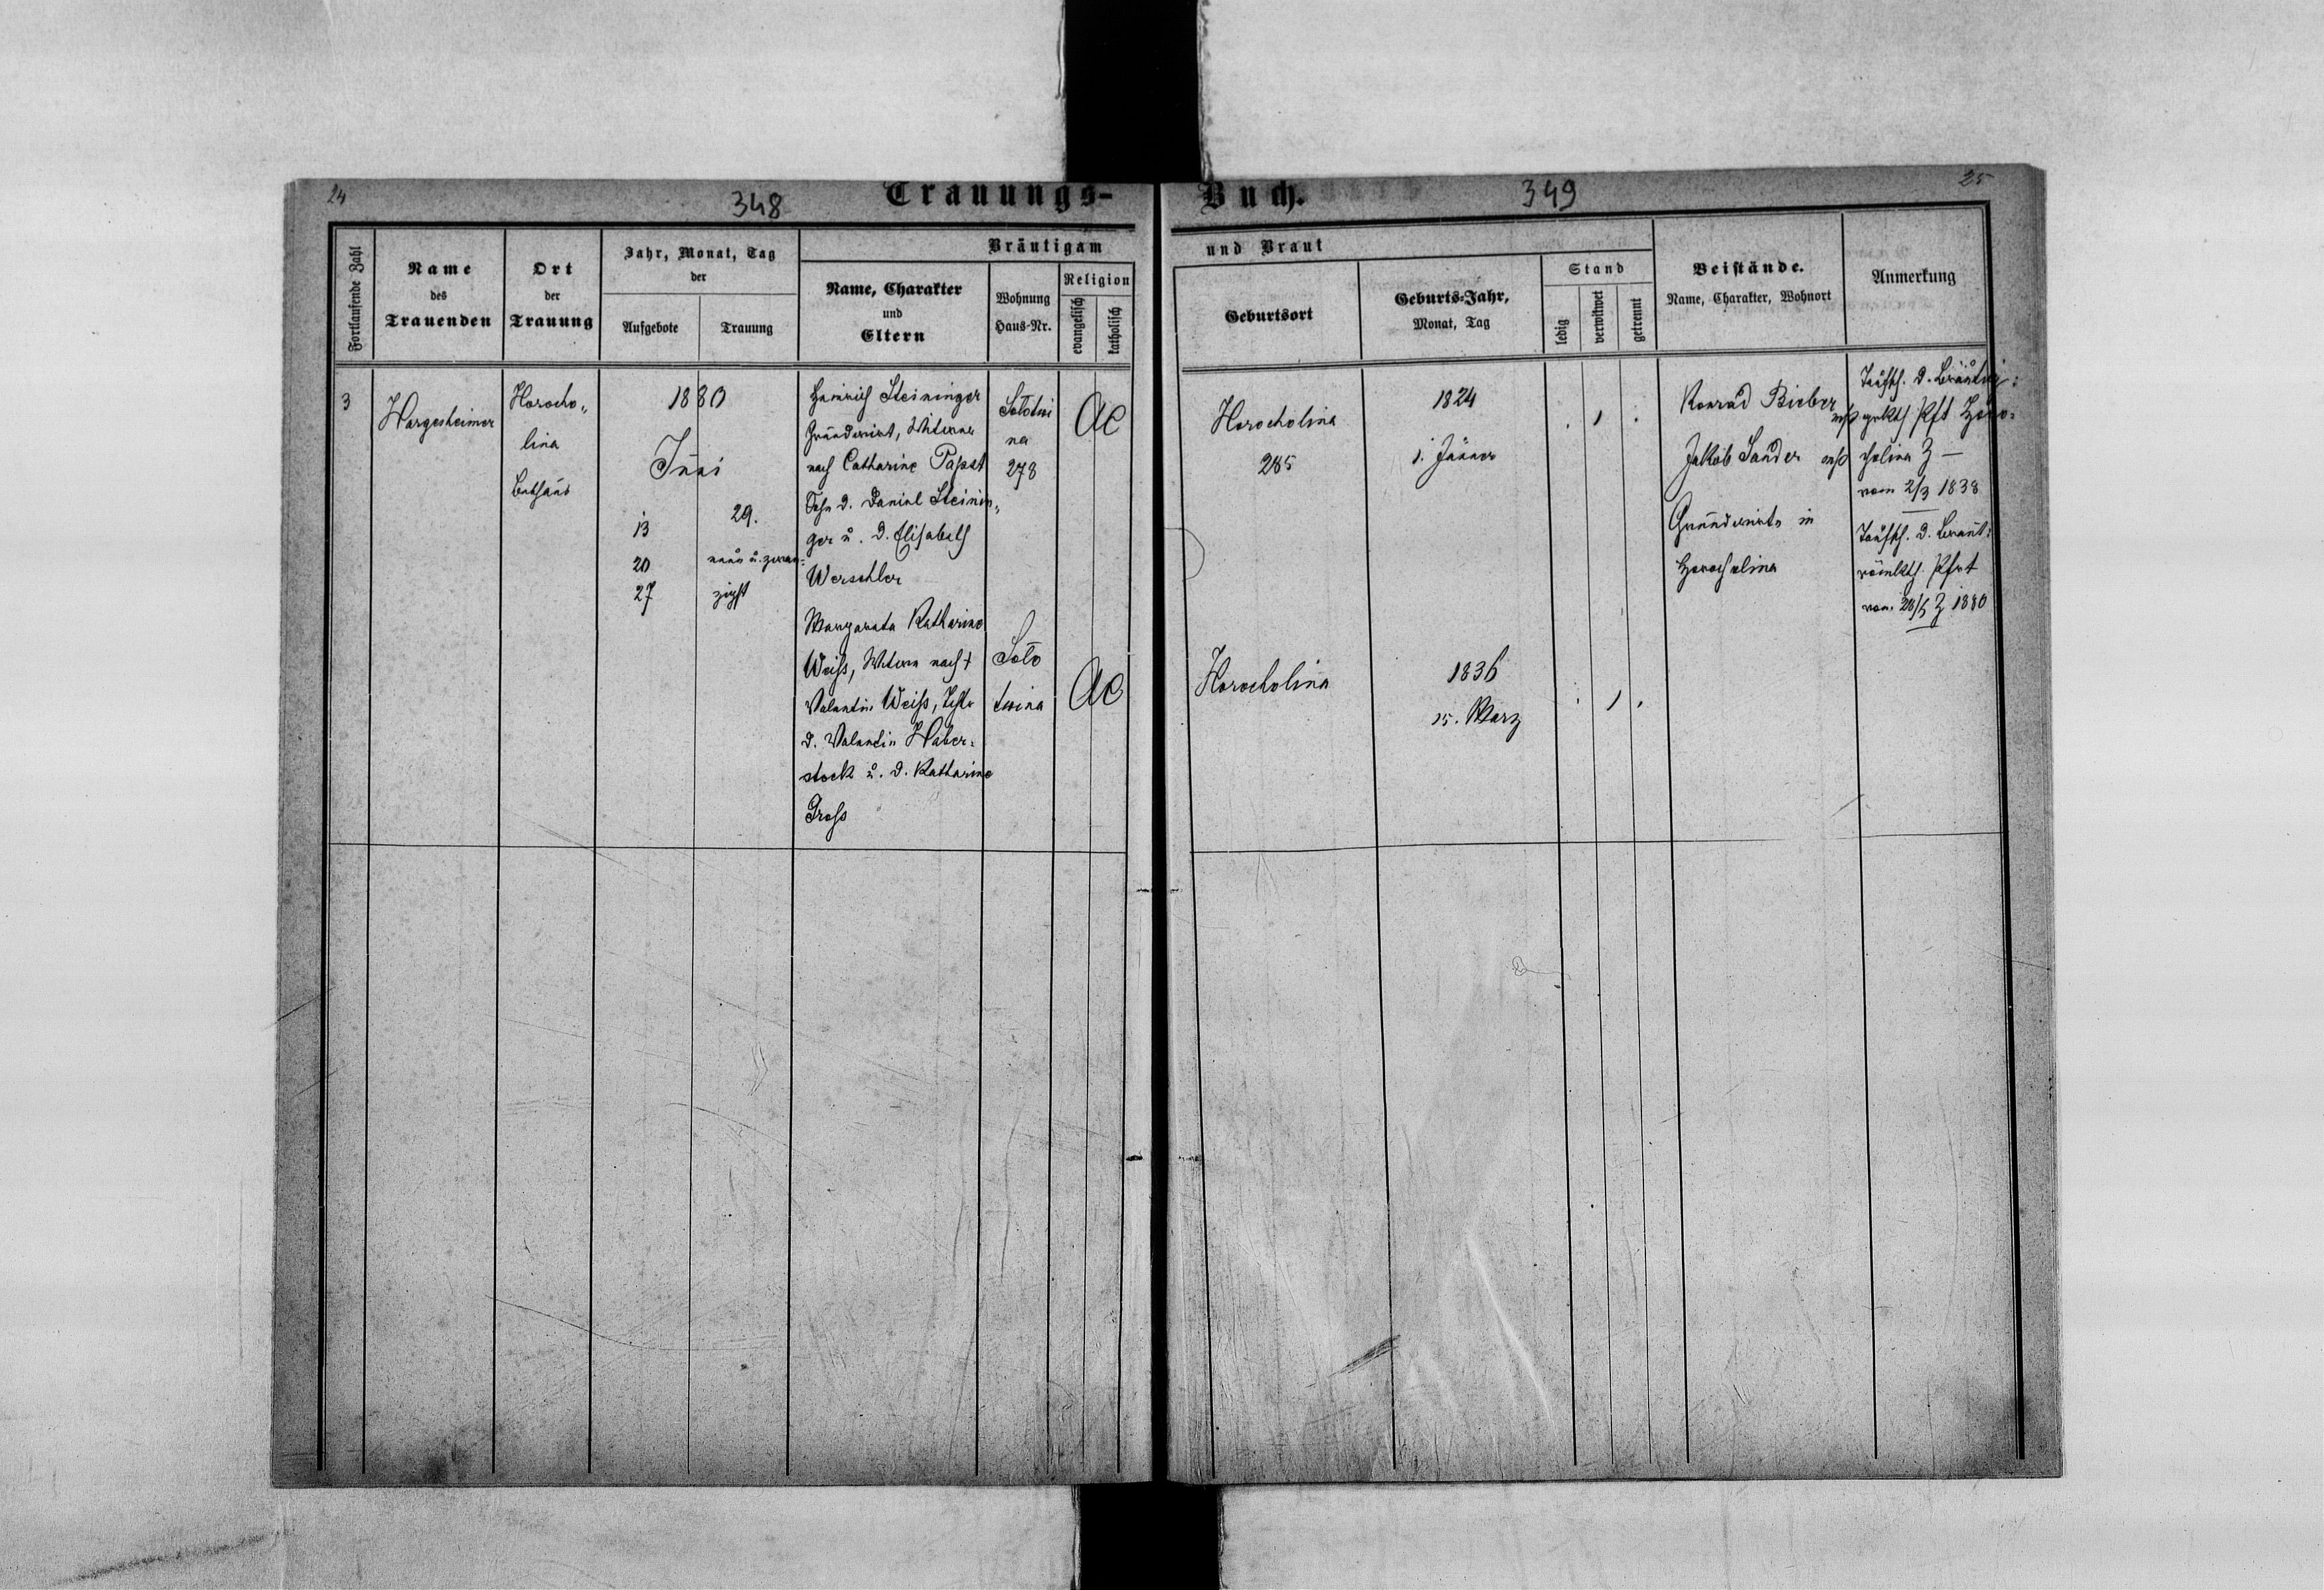 24
348
Trauungs-
Buch.
349
25
Fortlaufende Zahl
Name
des
Trauenden
Ort
der
Trauung
Jahr, Monat, Tag
der
Aufgebote
Trauung
Bräutigam
Name, Charakter
und
Eltern
Wohnung
Haus-Nr.
Religion
evangelisch
katholisch
und Braut
Geburtsort
Geburts-Jahr,
Monat, Tag
Stand
ledig
verwitwet
getrennt
Beistände.
Name, Charakter, Wohnort
Anmerkung
3
Hargesheimer
Horocho„
lina
Bethaus
1880
Juni
13
20
27
29.
neun u. zwan-
zigst
Heinrich Steininger
Grundwirt, Witwer
nach Catharine Papst
Sohn d. Daniel Steinin„
ger u. d. Elisabeth
Werschler
Sołotwi
na
278
AC
Margareta Katharine
Weiss, Witwe nach †
Valentin Weiss, Tocht
d. Valentin Haber-
stock u. d. Katharine
Gross
Soło
twina
AC
Horocholina
285
1824
1. Jänner
Horocholina
1836
15. März
Konrad Bieber
Jakob Sander
Grundwirte in
Horocholina
Taufsch. d. Bräutig:
grkth Pft Horo-
cholina Z —
vom 2/3 1838
Taufsch. d. Braut:
römkth. Pfrt
vom 28/5 Z 1880